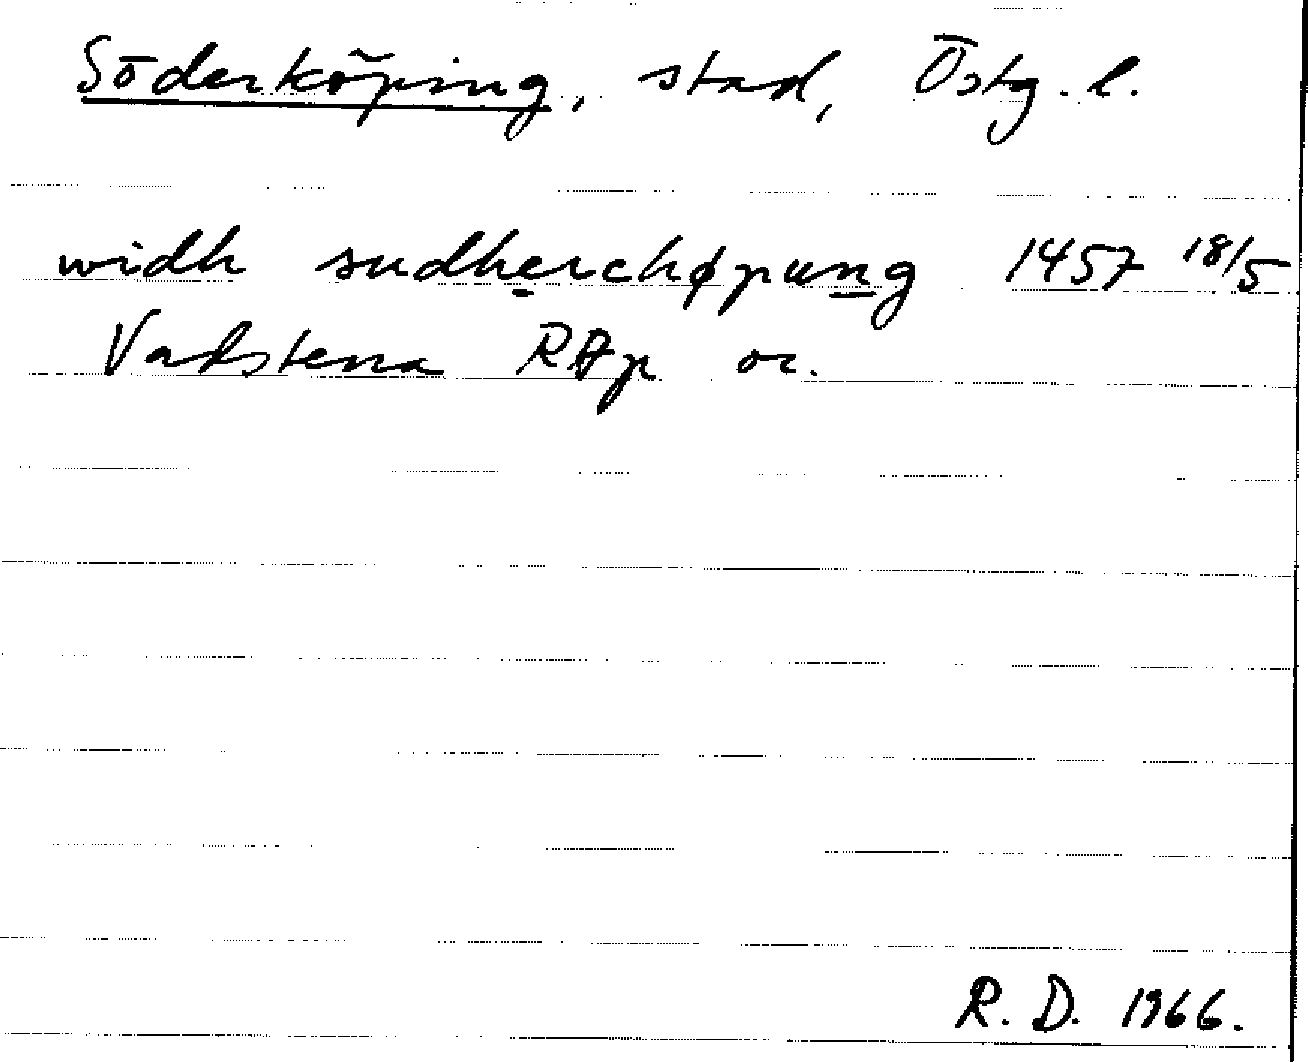 Söderköping, stad, Östg. l.
widh sudherchøpung 1457 18/5
Vakstena RAp or.
R. D. 1966.